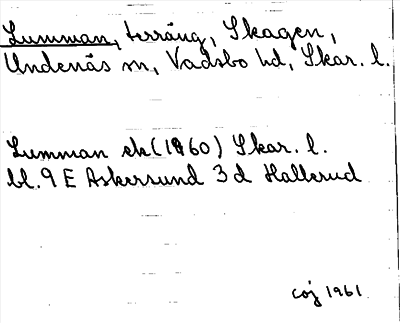 Lumman, terräng, Skagen,
Undenäs sn, Vadsbo hd, Skar. l.
Lumman ek (1960) Skar. l.
bl. 9 E Askersund 3 d Hallerud
coj 1961